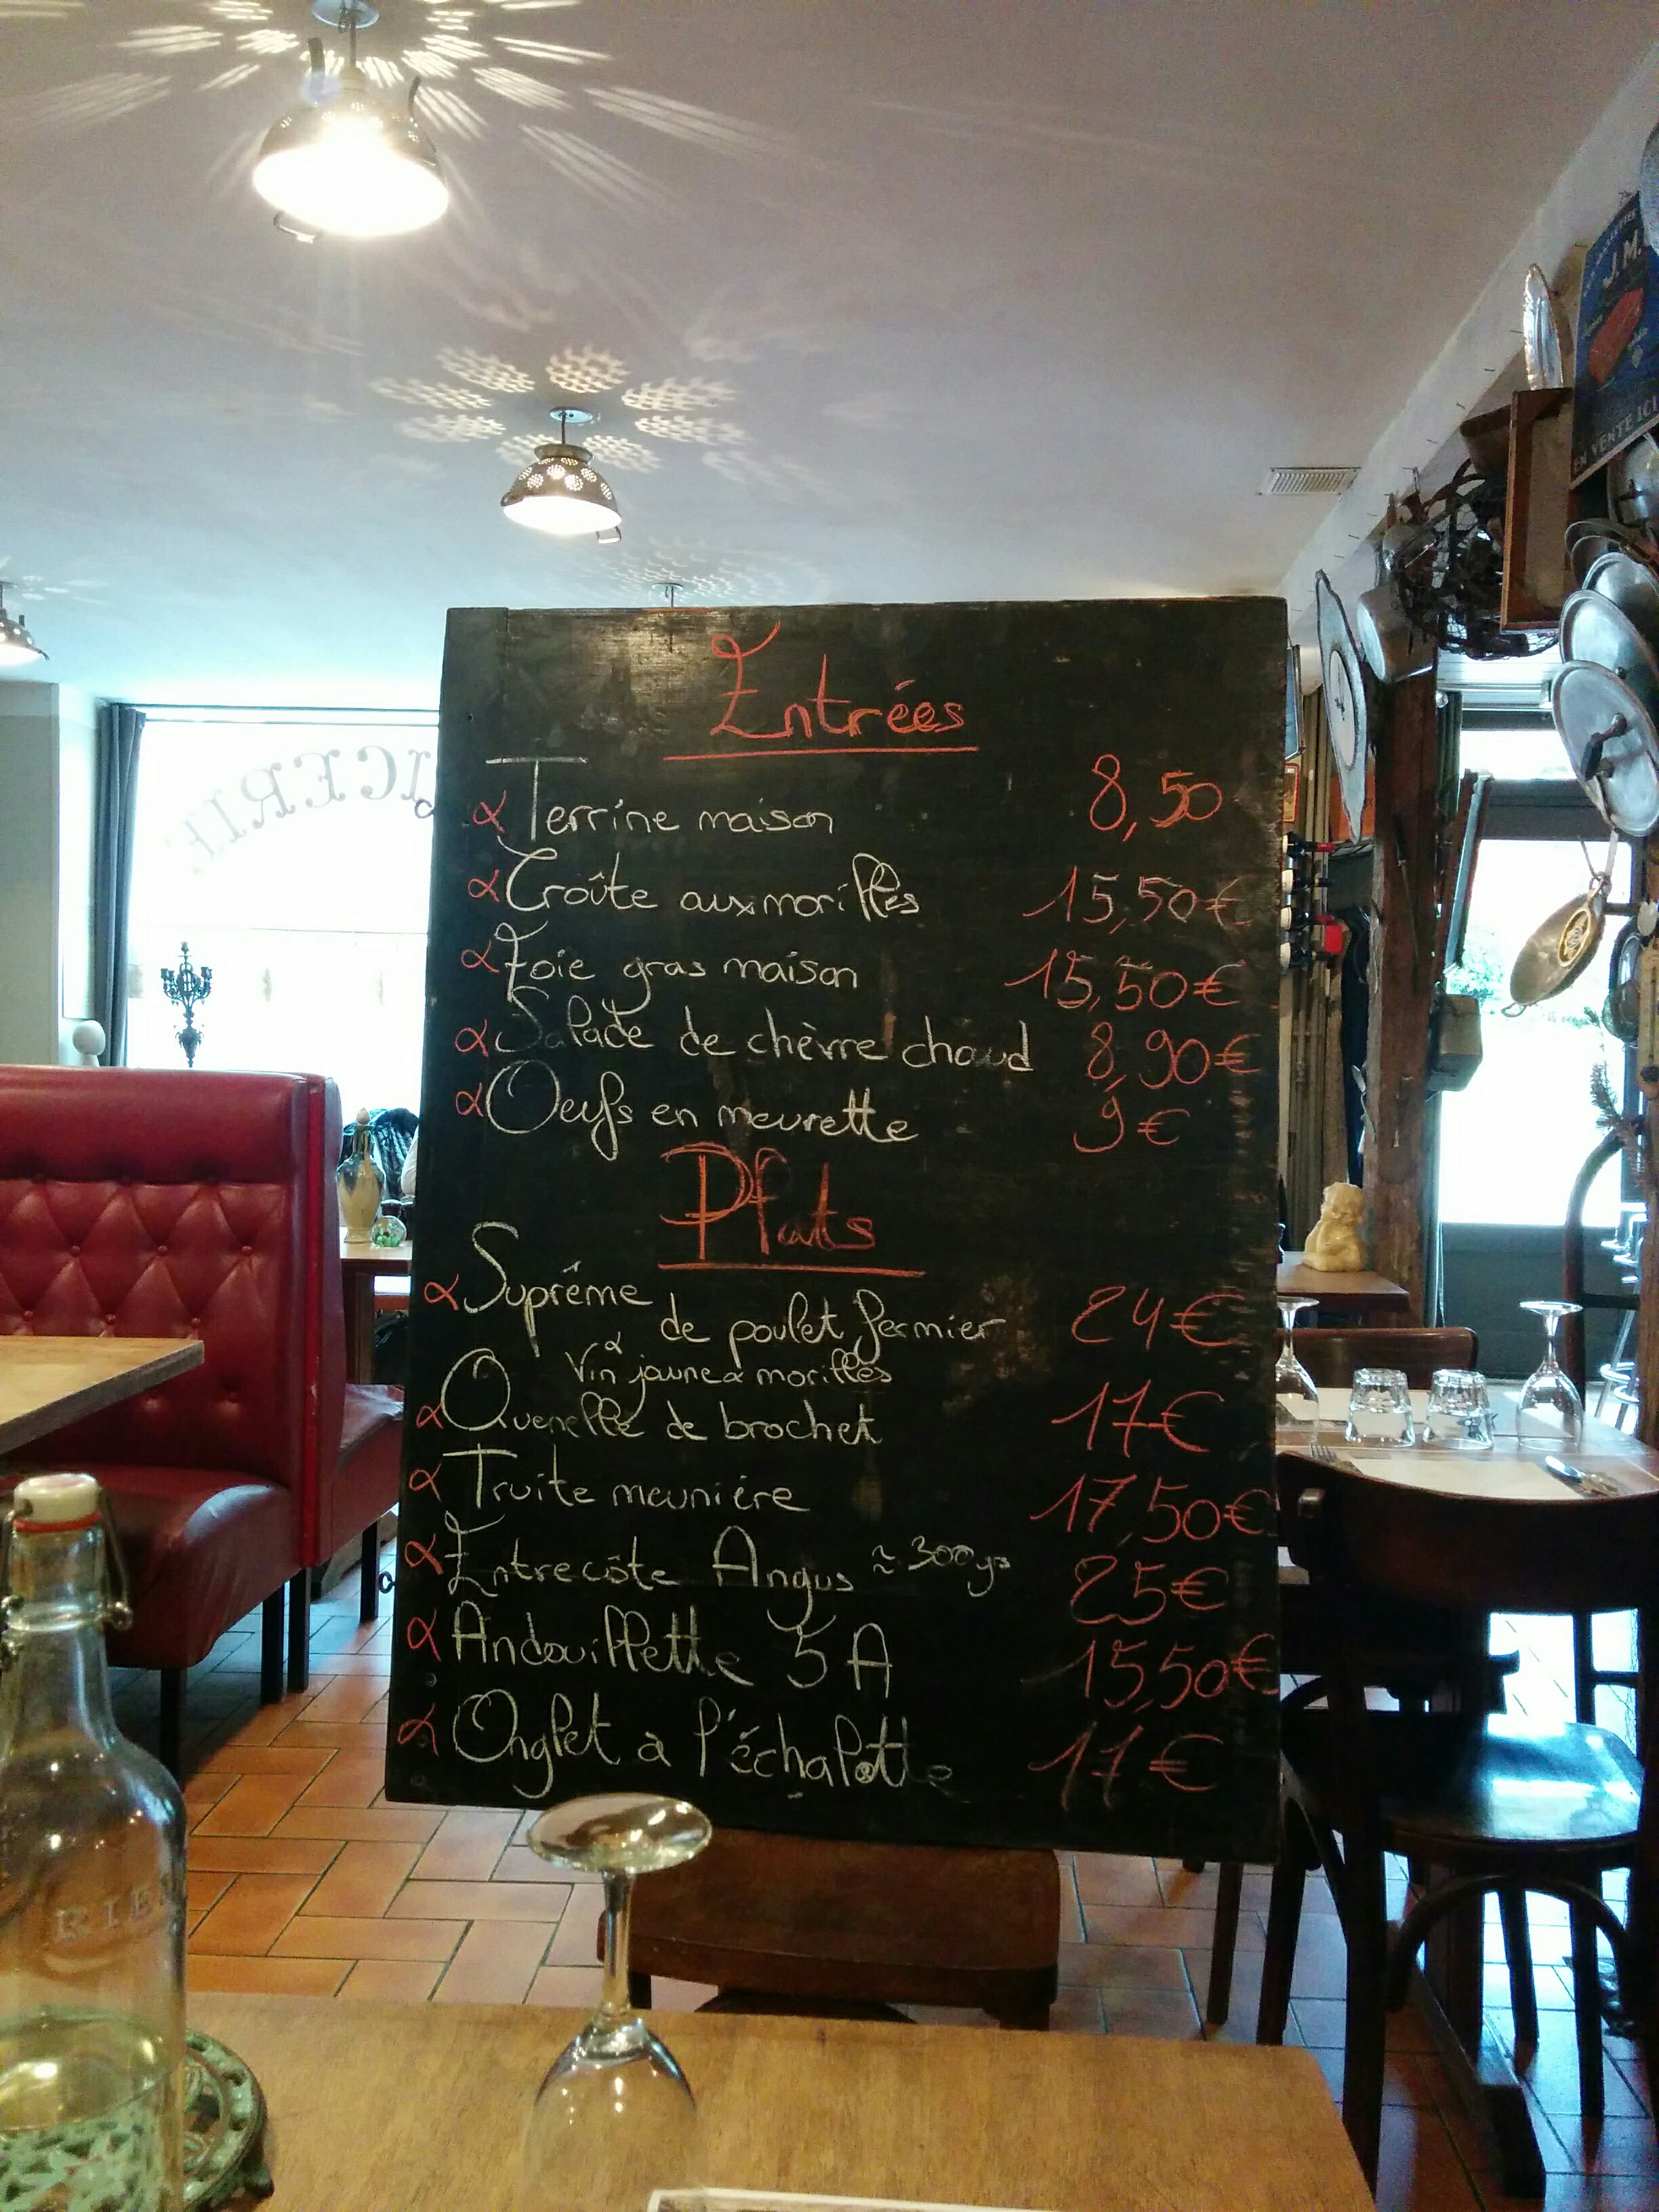 J.M.
EN VENTE ICI
ICERIE
Entrées
Terrine maison 8,50
Croûte aux morilles 15,50€
Foie gras maison 15,50€
Salade de chèvre chaud 8,90€
Oeufs en meurette 9€
Plats
Suprême de poulet fermier 24€
Vin jaune & morilles
Quenelle de brochet 17€
Truite meuniére 17,50€
Entrecôte Angus ≈ 300gr 25€
Andouillette 5A 15,50€
Onglet a l'échalotte 17€